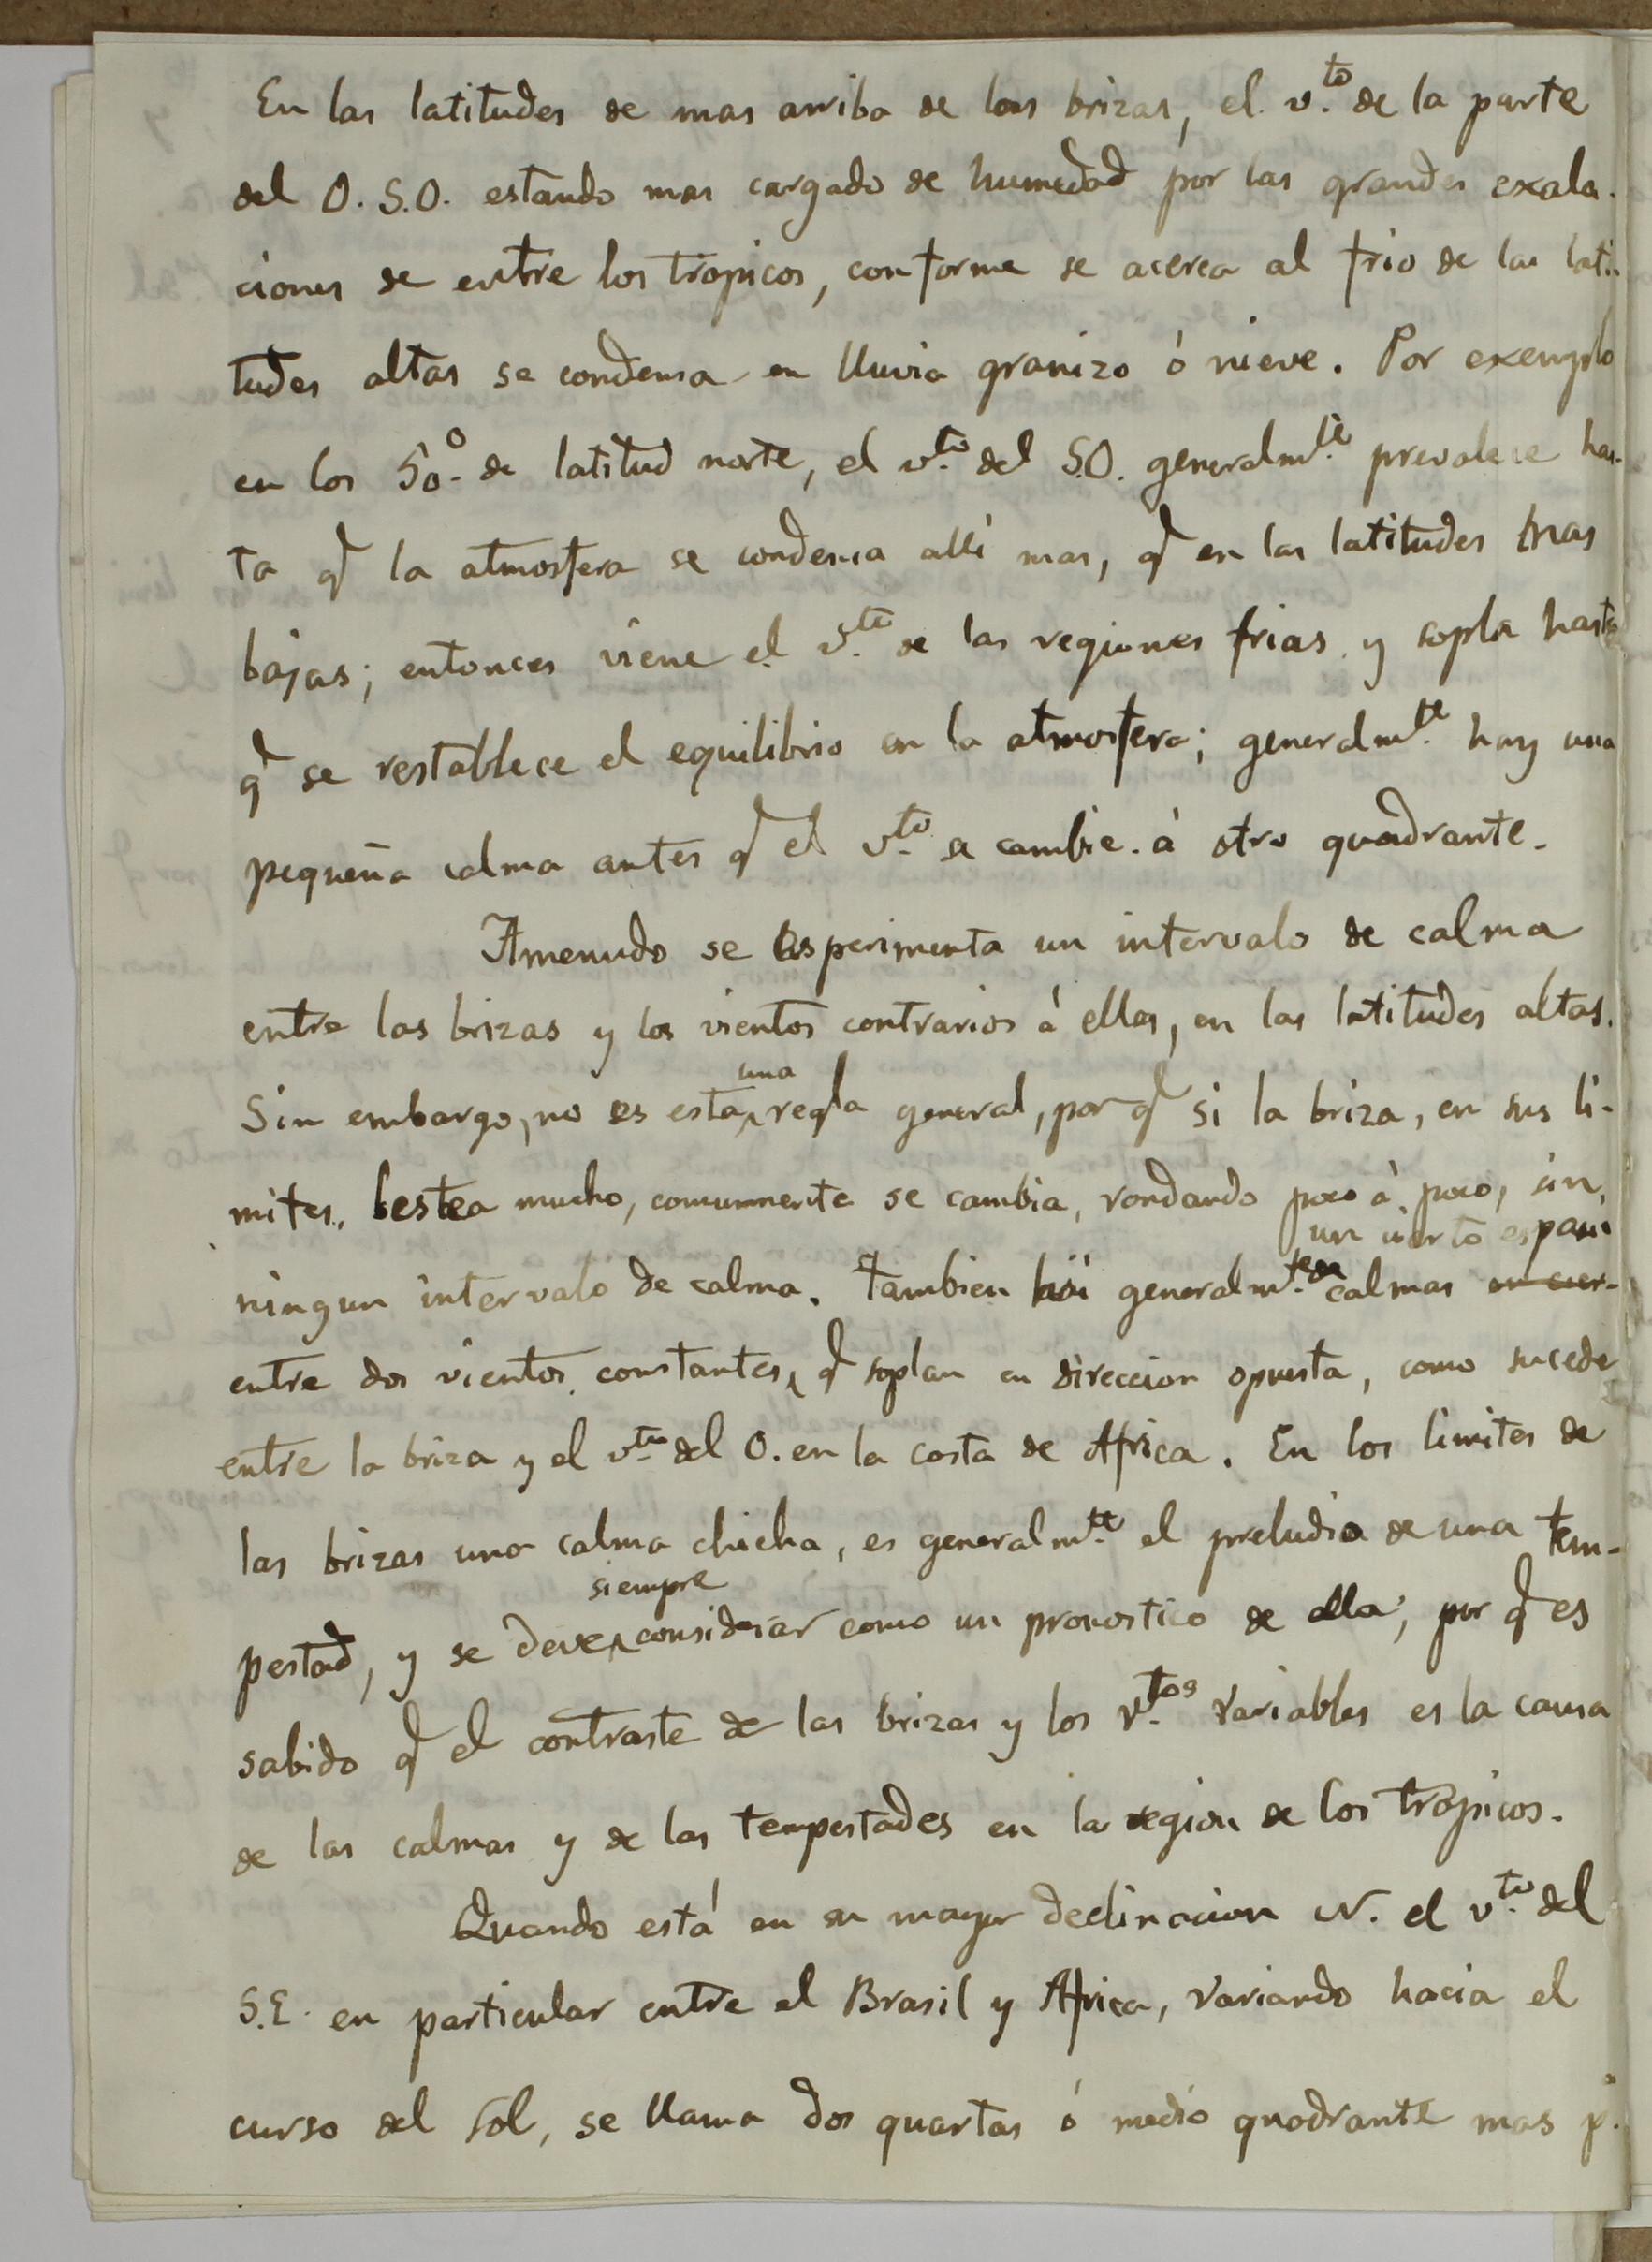 En las latitudes de mas arriba de las brizas, el v.to de la parte
del O.S.O. estando mas cargado de humedad por las grandes exala-
ciones de entre los tropicos, conforme se acerca al frio de las lati-
tudes altas se condensa en lluvia granizo ó nieve. Por exemplo
en los 50.º de latitud norte, el v.to del S.O. generalm.te prevalece has-
ta q.e la atmosfera se condensa alli mas, q.e en las latitudes mas
bajas; entonces viene el v.to de las regiones frias y sopla hasta
q.e se restablece el equilibrio en la atmosfera; generalm.te hay una
pequeña calma antes q.e el v.to se cambie á otro quadrante.
Amenudo se esperimenta un intervalo de calma
entre las brizas y los vientos contrarios á ellas, en las latitudes altas.
una
Sin embargo, no es esta regla general, por q.e si la briza, en sus li-
mites, lestea mucho, comunmente se cambia, rondando poco á poco, sin
un cierto espacio
ningun intervalo de calma. Tambien hai generalm.te en calmas en cier-
entre dos vientos constantes, q.e soplan en direccion opuesta, como sucede
entre la briza y el v.to del O. en la costa de Africa. En los limites de
las brizas una calma chicha, es generalm.te el preludio de una tem-
siempre
pestad, y se deve considerar como un pronostico de ella, por q.e es
sabido q.e el contraste de las brizas y los v.tos variables es la causa
de las calmas y de las tempestades en la region de los tropicos.
Quando está en su mayor declinacion N. el v.to del
S.E. en particular entre el Brasil y Africa, variando hacia el
curso del sol, se llama dos quartas ó medio quadrante mas p.